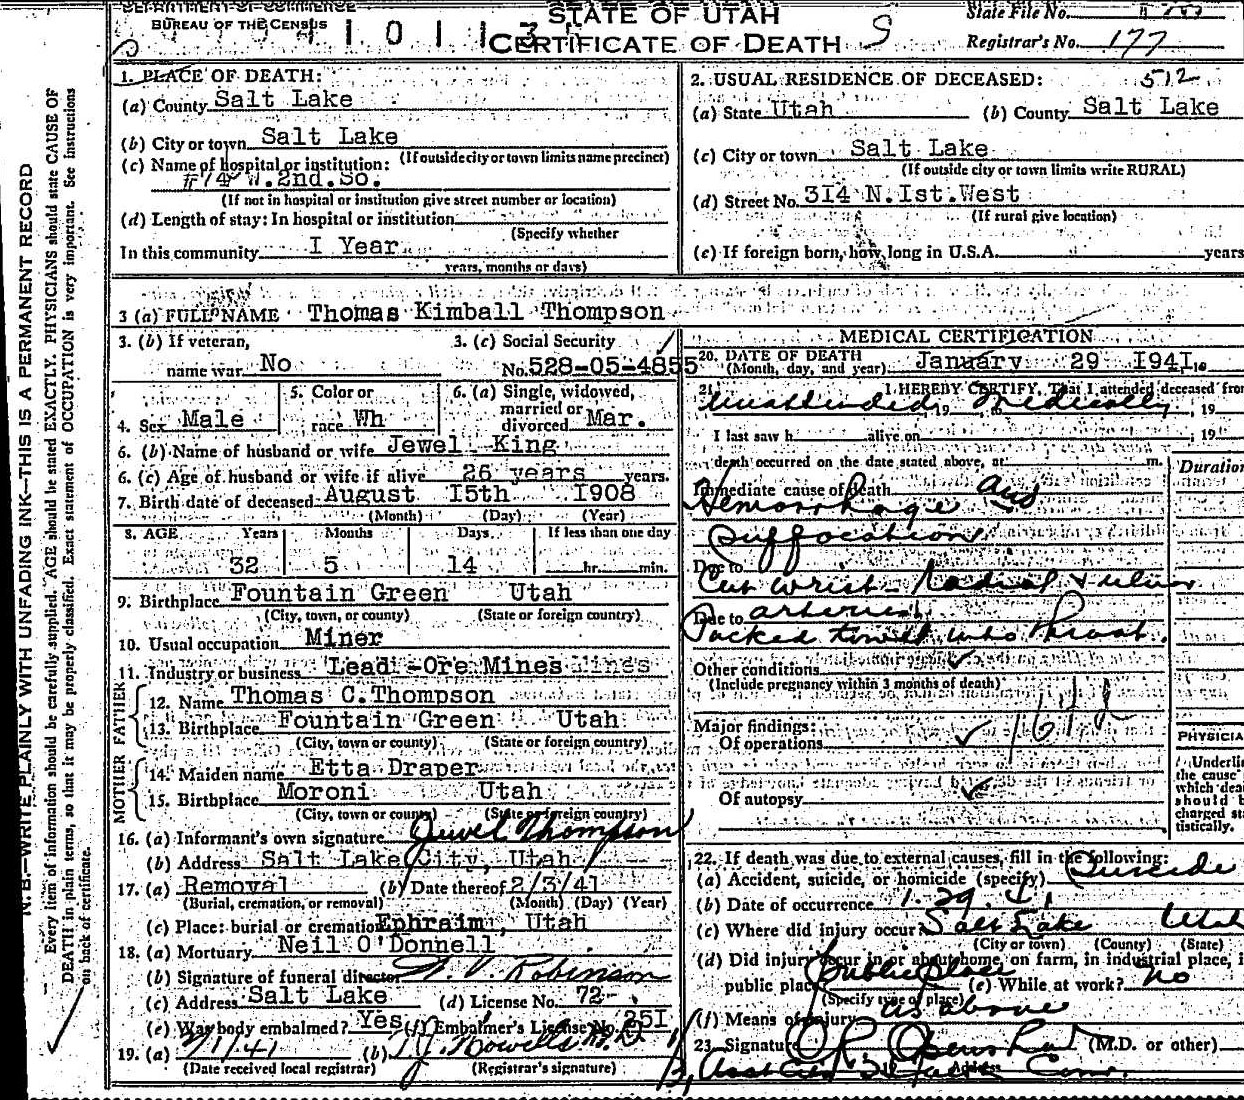 DEPARTMENT OF COMMERCE
BUREAU OF THE CENSUS
STATE OF UTAH
CERTIFICATE OF DEATH
State File No.
Registrar's No. 177
1. PLACE OF DEATH:
(a) County Salt Lake
(b) City or town Salt Lake
(If outside city or town limits name precinct)
(c) Name of hospital or institution:
W. 2nd. So.
(If not in hospital or institution give street number or location)
(d) Length of stay: In hospital or institution
(Specify whether
In this community I Year
years, months or days)
2. USUAL RESIDENCE OF DECEASED: 512
(a) State Utah (b) County Salt Lake
(c) City or town Salt Lake
(If outside city or town limits write RURAL)
(d) Street No. 314 N.Ist.West
(If rural give location)
(e) If foreign born, how long in U.S.A. years
3 (a) FULL NAME Thomas Kimball Thompson
3. (b) If veteran, name war No
3. (c) Social Security No. 528-05-4855
4. Sex Male
5. Color or race Wh
6. (a) Single, widowed, married or divorced Mar.
6. (b) Name of husband or wife Jewel King
6. (c) Age of husband or wife if alive 26 years years.
7. Birth date of deceased August I5th I908
(Month) (Day) (Year)
8. AGE Years Months Days If less than one day
32 5 14 hr. min.
9. Birthplace Fountain Green Utah
(City, town, or county) (State or foreign country)
10. Usual occupation Miner
11. Industry or business Lead -Ore Mines
FATHER
12. Name Thomas C.Thompson
13. Birthplace Fountain Green Utah
(City, town or county) (State or foreign country)
MOTHER
14. Maiden name Etta Draper
15. Birthplace Moroni Utah
(City, town or county) (State or foreign country)
16. (a) Informant's own signature Jewel Thompson
(b) Address Salt Lake City, Utah
17. (a) Removal (b) Date thereof 2/3/41
(Burial, cremation, or removal) (Month) (Day) (Year)
(c) Place: burial or cremation Ephraim, Utah
18. (a) Mortuary Neil O'Donnell
(b) Signature of funeral director Robinson
(c) Address Salt Lake (d) License No. 72-
(e) Was body embalmed? Yes (f) Embalmer's License No. 251
19. (a) /1/41 (b)
(Date received local registrar) (Registrar's signature)
MEDICAL CERTIFICATION
20. DATE OF DEATH January 29 I94I
(Month, day, and year)
21. I HEREBY CERTIFY, That I attended deceased from
Unattended Medically, 19
I last saw h alive on ; 19
death occurred on the date stated above, at m.
Duration
Immediate cause of death
Hemorrhage and
Suffocation
Due to
Cut wrist - Radial & ulnar
Due to arteries.
Packed towell into throat.
Other conditions
(Include pregnancy within 3 months of death)
Major findings:
Of operations
Of autopsy
PHYSICIA
Underlin
the cause
which dea
should b
charged sta
tistically.
22. If death was due to external causes, fill in the following:
(a) Accident, suicide, or homicide (specify) Suicide
(b) Date of occurrence 1.29.41
(c) Where did injury occur? Salt Lake Utah
(City or town) (County) (State)
(d) Did injury occur in or about home, on farm, in industrial place, i
public place public place (e) While at work? no
(Specify type of place)
(f) Means of injury as above
23. Signature (M.D. or other)
Address
N.B.—WRITE PLAINLY WITH UNFADING INK—THIS IS A PERMANENT RECORD
Every item of information should be carefully supplied. AGE should be stated EXACTLY. PHYSICIANS should state CAUSE OF
DEATH in plain terms, so that it may be properly classified. Exact statement of OCCUPATION is very important. See Instructions
on back of certificate.